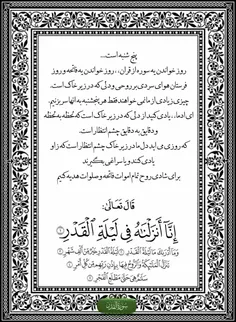 پنج شنبه است...
روز خواندن یه سوره از قران.. روز خواندن یه فاتحه و روز
فرستان هوای سردی بر روحی و دلی که در زیر خاک است
چیزی زیادی از ما نمی خواهند فقط هر پنجشنبه به آنها سر بزنیم.
ای ادما.. یادی کنید از دلی که در زیر خاک است که لحظه به لحظه
و دقایق به دقایق چشم انتظار است.
که روزی می اید دل ما در زیر خاک چشم انتظار است که از او
یادی کنند و یا سراغی بگیرند
برای شادی روح تمام اموات فاتحه و صلوات هدیه کنیم
قال تعالی:
إِنَّا أَنزَلْنَاهُ فِي لَيْلَةِ الْقَدْرِ
وَمَا أَدْرَاكَ مَا لَيْلَةُ الْقَدْرِ لَيْلَةُ الْقَدْرِ خَيْرٌ مِّنْ أَلْفِ شَهْرٍ
تَنَزَّلُ الْمَلَائِكَةُ وَالرُّوحُ فِيهَا بِإِذْنِ رَبِّهِم مِّن كُلِّ أَمْرٍ
سَلَامٌ هِيَ حَتَّىٰ مَطْلَعِ الْفَجْرِ